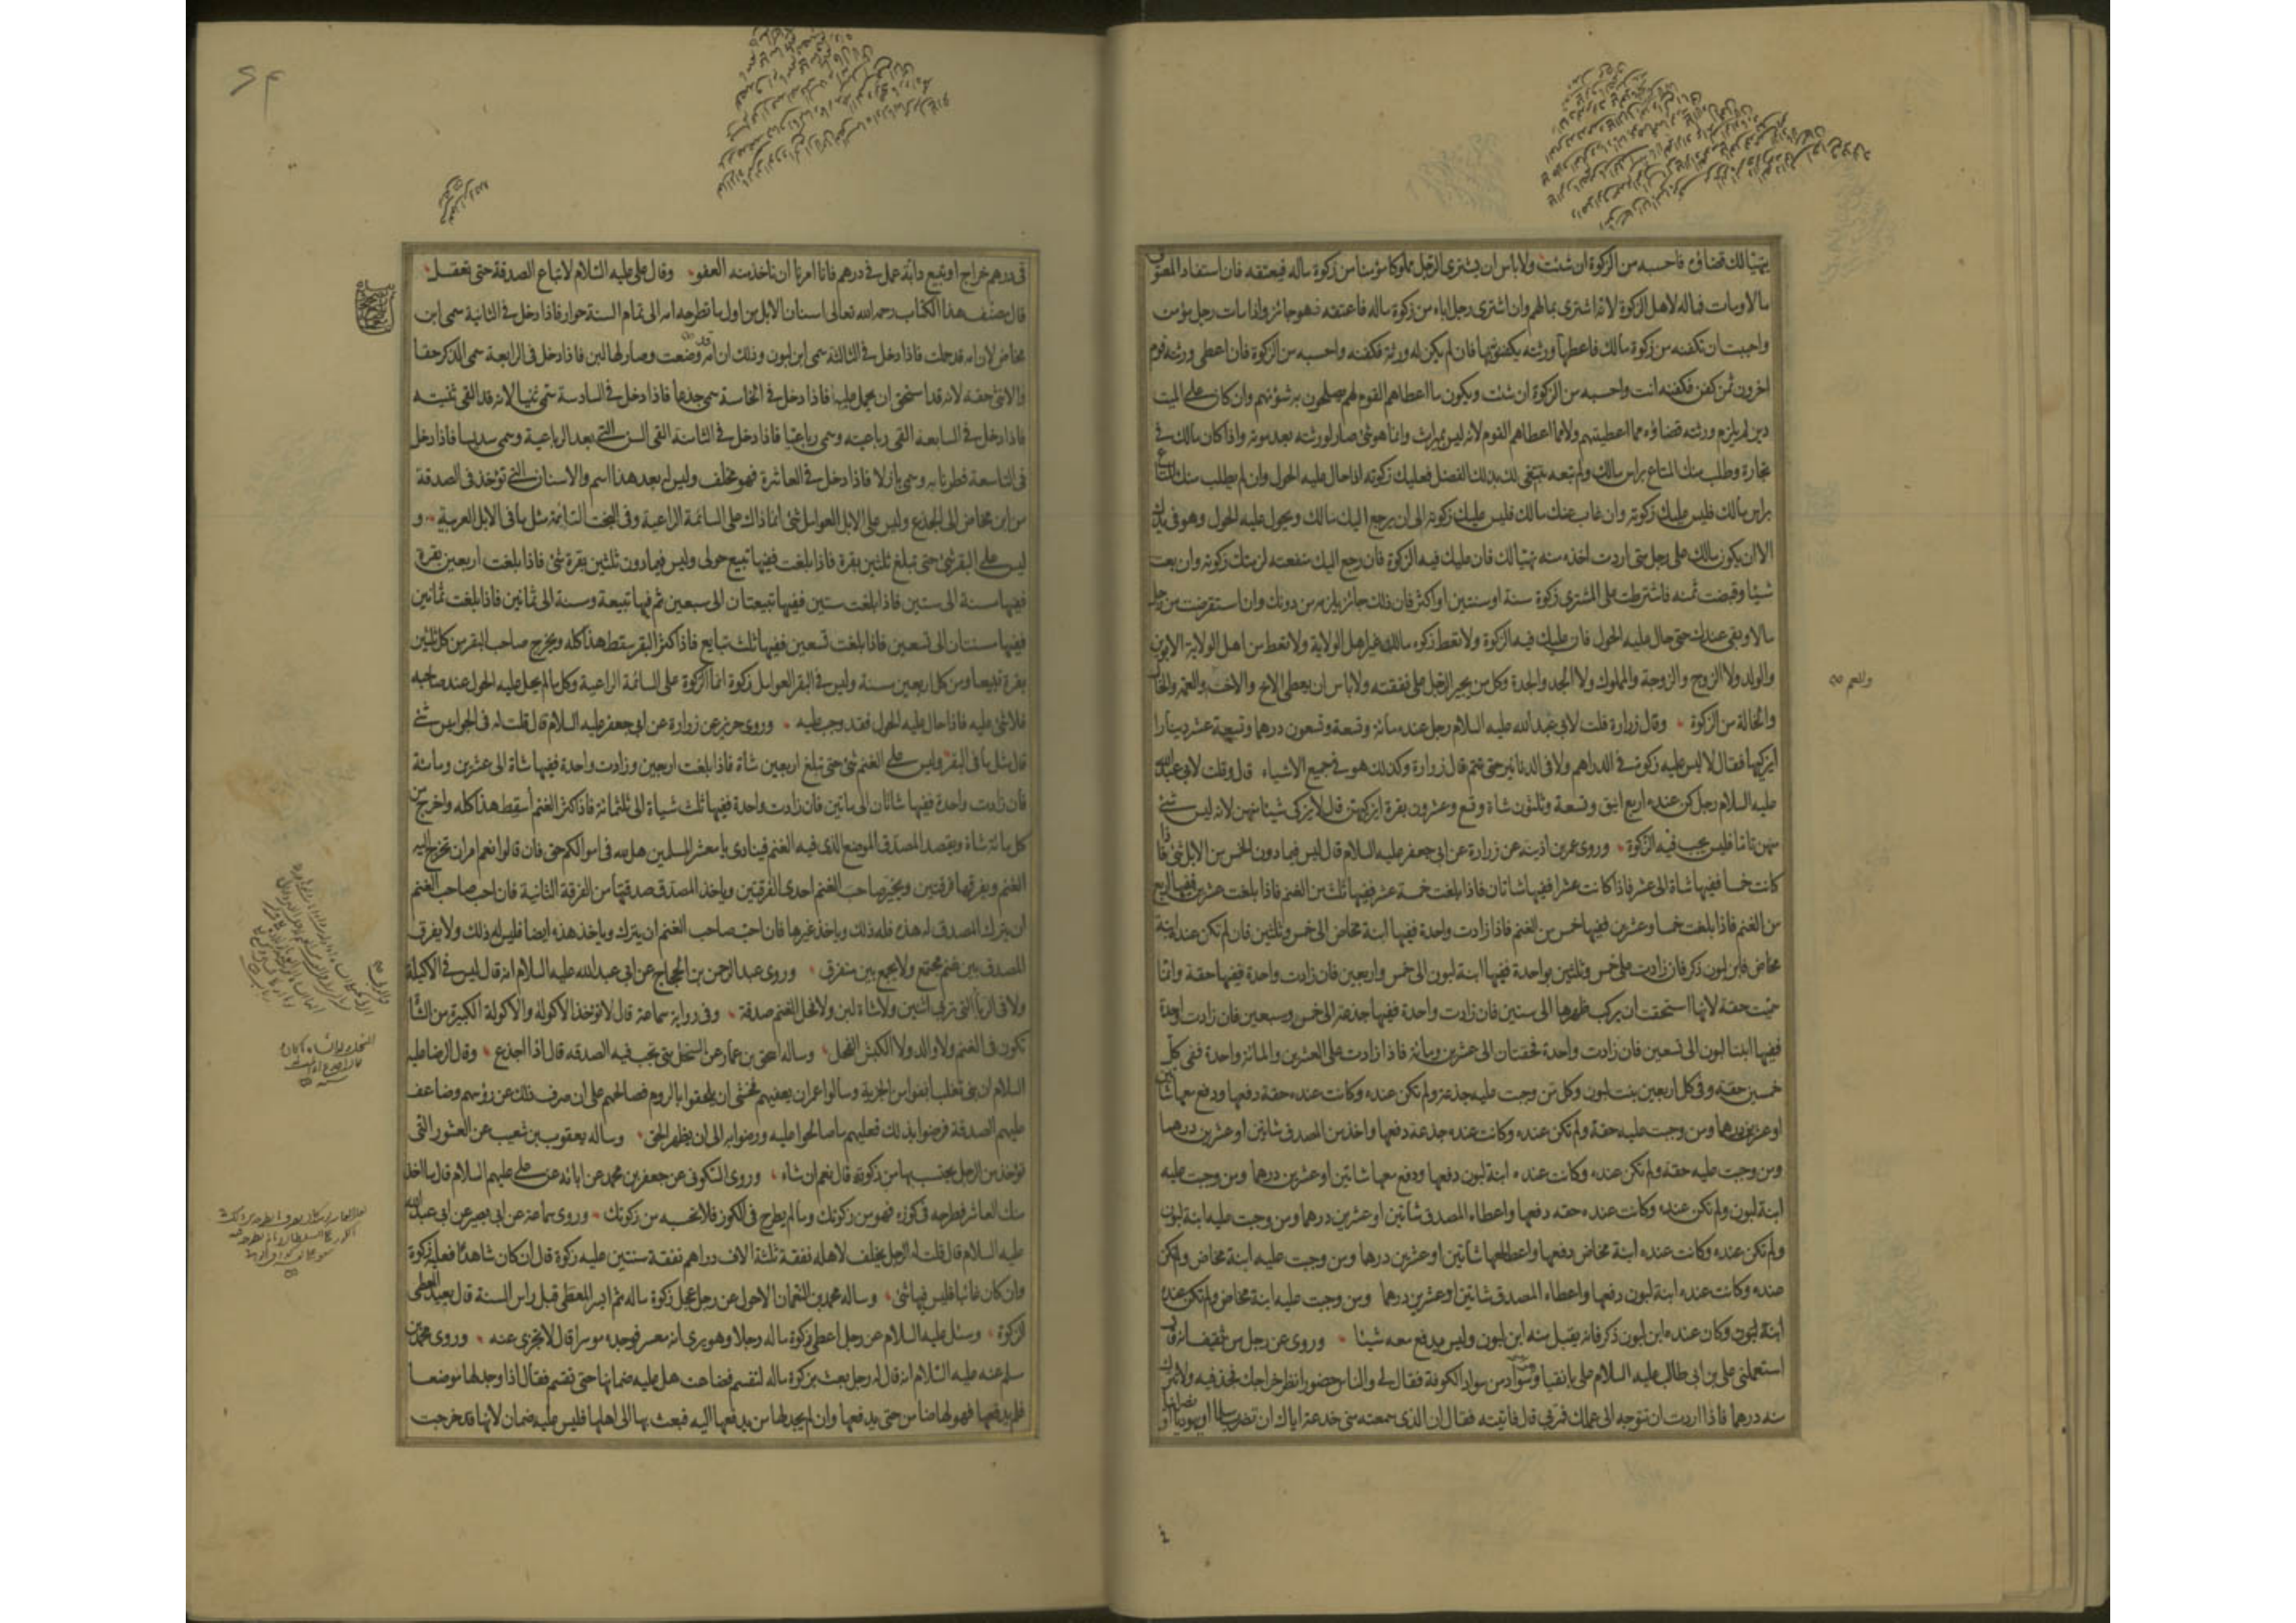 يتهيا لك قضاؤه فاحسبه من الزكوة ان شئت ولا باس ان يشترى الرجل مملوكا مؤمنا من زكوة ماله فيعتقه فان استفاد المعتق
مالا ومات فماله لاهل الزكوة لانه اشترى بمالهم وان اشترى رجل اباه من زكوة ماله فاعتقه فهو جائز واذا مات رجل مؤمن
واحببت ان تكفنه من زكوة مالك فاعطها ورثته يكفنونه بها فان لم يكن له ورثة فكفنه واحسبه من الزكوة فان اعطى ورثته قوم
اخرون ثمن كفن فكفنه انت واحسبه من الزكوة ان شئت ويكون ما اعطاهم القوم لهم يصلحون به شؤنهم وان كان على الميت
دين لم يلزم ورثته قضاؤه مما اعطيتهم ولا مما اعطاهم القوم لانه ليس بميراث وانما هو شئ صار لورثته بعد موته واذا كان مالك في
تجارة وطلب منك المتاع براس مالك ولم تبعه تبتغى لك بذلك الفضل فعليك زكوته اذا حال عليه الحول وان لم يطلب منك المتاع
براس مالك فليس عليك زكوته وان غاب عنك مالك فليس عليك زكوته الى ان يرجع اليك مالك ويحول عليه الحول وهو في يدك
الا ان يكون مالك على رجل متى اردت اخذه منه تهيا لك فان عليك فيه الزكوة فان رجع اليك منفعته لزمتك زكوته وان بعت
شيئا وقبضت ثمنه فاشترطت على المشترى زكوة سنة او سنتين او اكثر فان ذلك جائز يلزمه من دونك وان استقرضت من رجل
مالا وبقى عندك حتى حال عليه الحول فان عليك فيه الزكوة ولا تعط زكوة مالك غير اهل الولاية ولا تعط من اهل الولاية الابوين
والولد ولا الزوج والزوجة والمملوك ولا الجد والجدة وكل من يجبر الرجل على نفقته ولا باس ان يعطى الاخ والاخت والعمة والخال
والعم
والخالة من الزكوة وقال زرارة قلت لابي عبد الله عليه السلام رجل عنده مائة وتسعة وتسعون درهما وتسعة عشر دينارا
ايزكيها فقال لا ليس عليه زكوة في الدراهم ولا في الدنانير حتى يتم قال زرارة وكذلك هو في جميع الاشياء قال وقلت لابي عبد الله
عليه السلام رجل كن عنده اربع اينق وتسعة وثلثون شاة وتسع وعشرون بقرة ايزكيهن قال لا يزكى شيئا منهن لانه ليس شئ
منهن تاما فليس يجب فيه الزكوة وروى عمر بن اذينة عن زرارة عن ابي جعفر عليه السلام قال ليس فيما دون الخمس من الابل شئ فاذا
كانت خمسا ففيها شاة الى عشر فاذا كانت عشرا ففيها شاتان فاذا بلغت خمسة عشر ففيها ثلث من الغنم فاذا بلغت عشرين ففيها اربع
من الغنم فاذا بلغت خمسا وعشرين ففيها خمس من الغنم فاذا زادت واحدة ففيها ابنة مخاض الى خمس وثلثين فان لم تكن عنده ابنة
مخاض فابن لبون ذكر فان زادت على خمس وثلثين بواحدة ففيها ابنة لبون الى خمس واربعين فان زادت واحدة ففيها حقة وانما
سميت حقة لانها استحقت ان يركب ظهرها الى ستين فان زادت واحدة ففيها جذعة الى خمس وسبعين فان زادت واحدة
ففيها ابنتا لبون الى تسعين فان زادت واحدة فحقتان الى عشرين ومائة فاذا زادت على العشرين والمائة واحدة ففي كل
خمسين حقة وفي كل اربعين بنت لبون وكل من وجبت عليه جذعة ولم تكن عنده وكانت عنده حقة دفعها ودفع معها شاتين
او عشرين درهما ومن وجبت عليه حقة ولم تكن عنده وكانت عنده جذعة دفعها واخذ من المصدق شاتين او عشرين درهما
ومن وجبت عليه حقة ولم تكن عنده وكانت عنده ابنة لبون دفعها ودفع معها شاتين او عشرين درهما ومن وجبت عليه
ابنة لبون ولم تكن عنده وكانت عنده حقة دفعها واعطاه المصدق شاتين او عشرين درهما ومن وجبت عليه ابنة لبون
ولم تكن عنده وكانت عنده ابنة مخاض دفعها واعطى معها شاتين او عشرين درهما ومن وجبت عليه ابنة مخاض ولم تكن
عنده وكانت عنده ابنة لبون دفعها واعطاه المصدق شاتين او عشرين درهما ومن وجبت عليه ابنة مخاض ولم تكن عنده
ابنة لبون وكان عنده ابن لبون ذكر فانه يقبل منه ابن لبون وليس يدفع معه شيئا وروى عن رجل من ثقيف انه قال
استعملنى على بن ابي طالب عليه السلام على بانقيا وسواد من سواد الكوفة فقال لى والناس حضور انظر خراجك فجد فيه ولا تترك
منه درهما فاذا اردت ان تتوجه الى عملك فمر بى قال فاتيته فقال ان الذى سمعته منى خدعة اياك ان تضرب مسلما او يهوديا او نصرانيا
في درهم خراج او تبيع دابة عمل في درهم فانا امرنا ان ناخذ منه العفو وقال على عليه السلام لا تباع الصدقة حتى تعقل
قال مصنف هذا الكتاب رحمه الله تعالى اسنان الابل من اول ما تطرحه امه الى تمام السنة حوار فاذا دخل في الثانية سمى ابن
مخاض لان امه قد حملت فاذا دخل في الثالثة سمى ابن لبون وذلك ان امه قد وضعت وصار لها لبن فاذا دخل في الرابعة سمى الذكر حقا
والانثى حقة لانه قد استحق ان يحمل عليها فاذا دخل في الخامسة سمى جذعا فاذا دخل في السادسة سمى ثنيا لانه قد القى ثنيته
فاذا دخل في السابعة القى رباعيته وسمى رباعيا فاذا دخل في الثامنة القى السن التى بعد الرباعية وسمى سديسا فاذا دخل
في التاسعة فطر نابه وسمى بازلا فاذا دخل في العاشرة فهو مخلف وليس له بعد هذا اسم والاسنان التى تؤخذ في الصدقة
من ابن مخاض الى الجذع وليس على الابل العوامل شئ انما ذاك على السائمة الراعية وفي البخت السائمة مثل ما في الابل العربية و
ليس على البقر شئ حتى تبلغ ثلثين بقرة فاذا بلغت ففيها تبيع حولى وليس فيما دون ثلثين بقرة شئ فاذا بلغت اربعين بقرة
ففيها مسنة الى ستين فاذا بلغت ستين ففيها تبيعتان الى سبعين ثم فيها تبيعة ومسنة الى ثمانين فاذا بلغت ثمانين
ففيها مسنتان الى تسعين فاذا بلغت تسعين ففيها ثلث تبايع فاذا كثر البقر سقط هذا كله ويخرج صاحب البقر من كل ثلثين
بقرة تبيعا ومن كل اربعين مسنة وليس في البقر العوامل زكوة انما الزكوة على السائمة الراعية وكل ما لم يحل عليه الحول عند صاحبه
فلا شئ عليه فاذا حال عليه الحول فقد وجب عليه وروى حريز عن زرارة عن ابي جعفر عليه السلام قال قلت له في الجواميس شئ
قال مثل ما في البقر وليس على الغنم شئ حتى تبلغ اربعين شاة فاذا بلغت اربعين وزادت واحدة ففيها شاة الى عشرين ومائة
فان زادت واحدة ففيها شاتان الى مائتين فان زادت واحدة ففيها ثلث شياة الى ثلثمائة فاذا كثر الغنم اسقط هذا كله واخرج من
كل مائة شاة ويقصد المصدق الموضع الذى فيه الغنم فينادى يا معشر المسلمين هل لله في اموالكم حق فان قالوا نعم امر ان تخرج اليه
الغنم ويفرقها فرقتين ويخير صاحب الغنم احدى الفرقتين وياخذ المصدق صدقتها من الفرقة الثانية فان احب صاحب الغنم
ان يترك المصدق له هذه فله ذلك وياخذ غيرها فان احب صاحب الغنم ان يترك وياخذ هذه ايضا فليس له ذلك ولا يفرق
المصدق بين غنم مجتمع ولا يجمع بين متفرق وروى عبد الرحمن بن الحجاج عن ابي عبد الله عليه السلام انه قال ليس في الاكيلة
ولا في الربا التى تربى اثنين ولا شاة لبن ولا فحل الغنم صدقة وفي رواية سماعة قال لا تؤخذ الاكولة والاكولة الكبيرة من الشاة
تكون في الغنم ولا والد ولا الكبش الفحل وساله اسحق بن عمار عن السخل متى تجب فيه الصدقة قال اذا اجذع وقال الرضا عليه
السلام ان بنى تغلب انفوا من الجزية وسالوا عمر ان يعفيهم فخشى ان يلحقوا بالروم فصالحهم على ان صرف ذلك عن رؤسهم وضاعف
عليهم الصدقة فرضوا بذلك فعليهم ما صالحوا عليه ورضوا به الى ان يظهر الحق وساله يعقوب بن شعيب عن العشور التى
تؤخذ من الرجل يحتسب بها من زكوته قال نعم ان شاء وروى السكونى عن جعفر بن محمد عن ابائه عن على عليهم السلام قال ما اخذ
منك العاشر فطرحه في كوزه فهو من زكوتك وما لم يطرح في الكوز فلا تحسبه من زكوتك وروى سماعة عن ابي بصير عن ابي عبد الله
عليه السلام قال قلت له الرجل يخلف لاهله نفقة ثلثة الاف دراهم نفقة سنتين عليه زكوة قال ان كان شاهدا فعليه زكوة
وان كان غائبا فليس فيها شئ وساله محمد بن النعمان الاحول عن رجل عجل زكوة ماله ثم ايسر المعطى قبل راس السنة قال يعيد المعطى
الزكوة وسئل عليه السلام عن رجل اعطى زكوة ماله رجلا وهو يرى انه معسر فوجده موسرا قال لا يجزى عنه وروى محمد بن
مسلم عنه عليه السلام انه قال له رجل بعث بزكوة ماله لتقسم فضاعت هل عليه ضمانها حتى تقسم فقال اذا وجد لها موضعا
فلم يدفعها فهو لها ضامن حتى يدفعها وان لم يجد لها من يدفعها اليه فبعث بها الى اهلها فليس عليه ضمان لانها قد خرجت